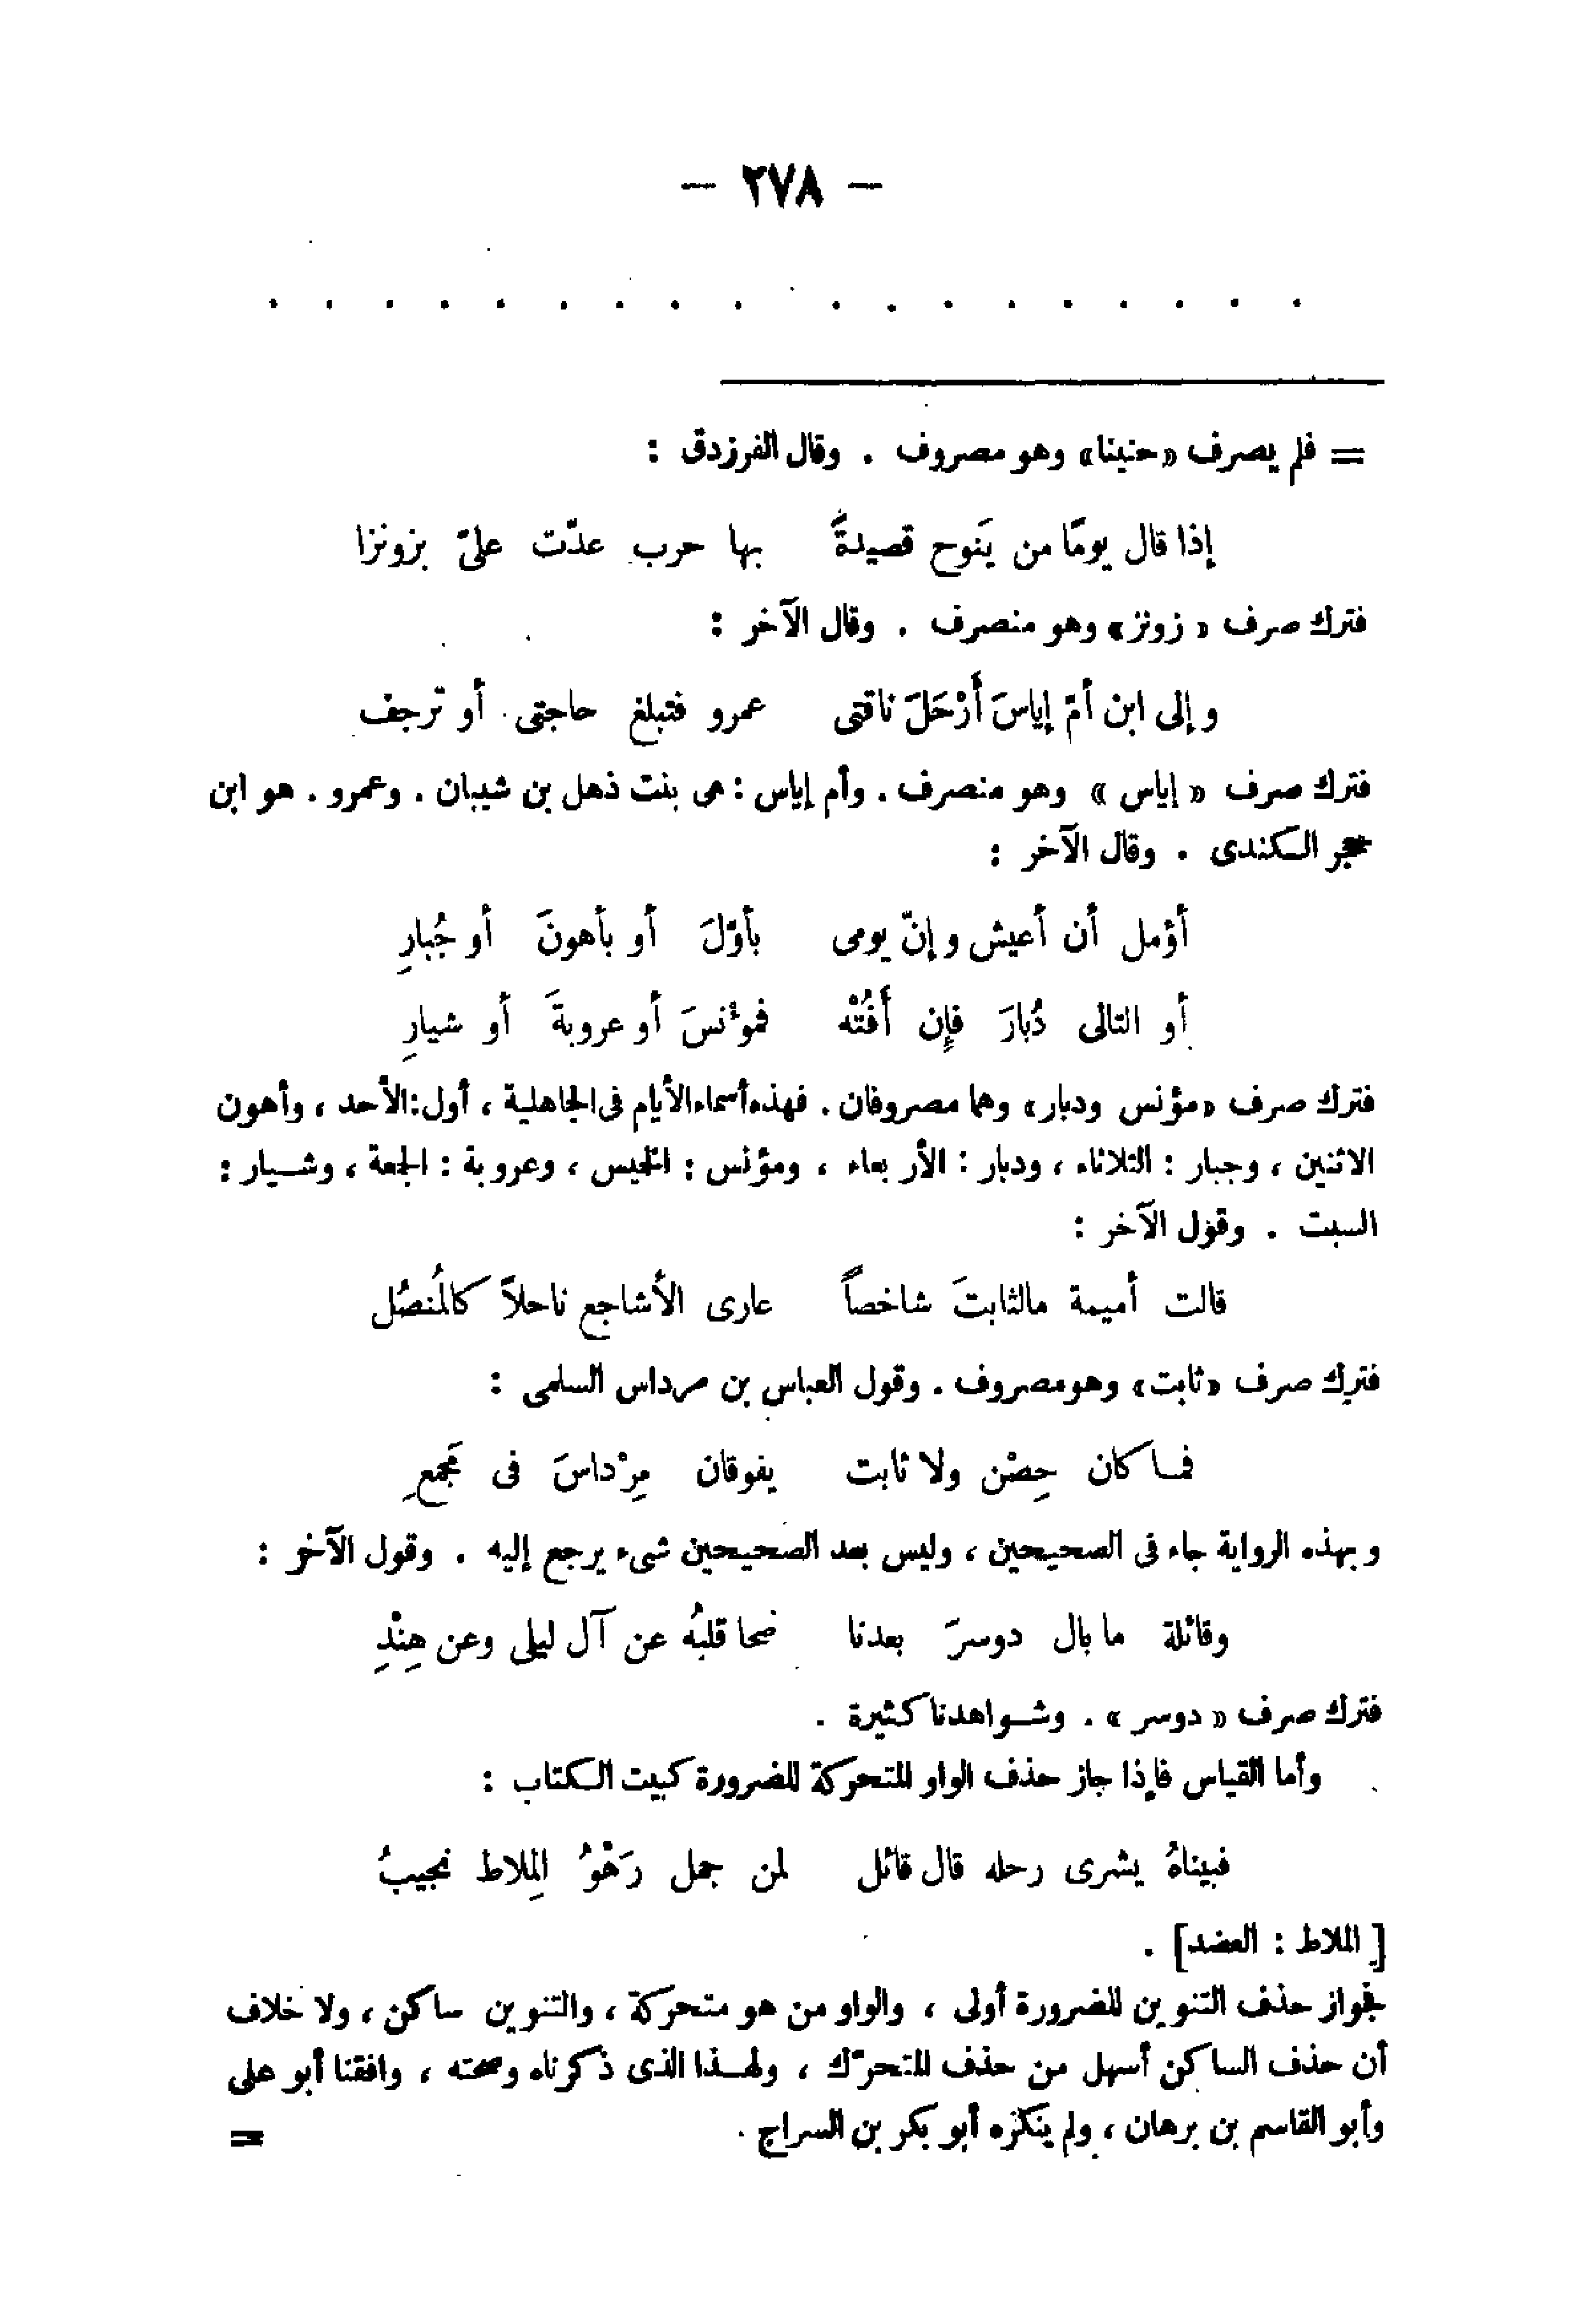 — ٢٧٨ —
. . . . . . . . . . . . . . . . . .
= فلم يصرف «حنينا» وهو مصروف . وقال الفرزدق :
إذا قال يومًا من يَنوح قصيدةً بها حرب عدّت علىّ بزونزا
فترك صرف « زونز» وهو منصرف . وقال الآخر :
وإلى ابن أمّ إياسَ أَرْحَلَ ناقتى عمرو فتبلغ حاجتى أو ترجف
فترك صرف « إياس » وهو منصرف . وأم إياس : هى بنت ذهل بن شيبان . وعمرو . هو ابن
حجر الكندى . وقال الآخر :
أؤمل أن أعيش وإنّ يومى بأوّلَ أو بأهونَ أو جُبارِ
أو التالى دُبارَ فإِن أَفُتْه فمؤنسَ أو عروبةَ أو شيارِ
فترك صرف «مؤنس ودبار» وهما مصروفان . فهذه أسماء الأيام فى الجاهلية ، أول : الأحد ، وأهون
الاثنين ، وجبار : الثلاثاء ، ودبار : الأربعاء ، ومؤنس : الخميس ، وعروبة : الجمعة ، وشيار :
السبت . وقول الآخر :
قالت أميمة مالثابتَ شاخصاً عارى الأشاجع ناحلاً كالمُنصُل
فترك صرف «ثابت» وهو مصروف . وقول العباس بن مرداس السلمى :
فما كان حِصْن ولا ثابت يفوقان مِرْداسَ فى مَجمعِ
وبهذه الرواية جاء فى الصحيحين ، وليس بعد الصحيحين شىء يرجع إليه . وقول الآخر :
وقائلة ما بال دوسرَ بعدنا صحا قلبُه عن آل ليلى وعن هِنْدِ
فترك صرف « دوسر » . وشواهدنا كثيرة .
وأما القياس فإذا جاز حذف الواو المتحركة للضرورة كبيت الكتاب :
فبيناهُ يشرى رحله قال قائل لمن جمل رَهْوُ المِلاط نجيبُ
[ الملاط : العضد] .
فجواز حذف التنوين للضرورة أولى ، والواو من هو متحركة ، والتنوين ساكن ، ولا خلاف
أن حذف الساكن أسهل من حذف المتحرّك ، ولهذا الذى ذكرناه وصحته ، وافقنا أبو على
وأبو القاسم بن برهان ، ولم ينكره أبو بكر بن السراج . =